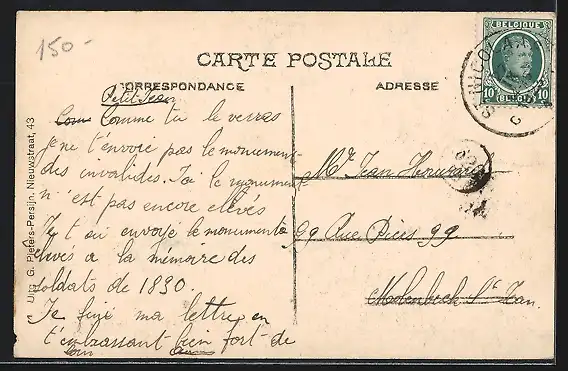 150-
CARTE POSTALE
CORRESPONDANCE
ADRESSE
BELGIQUE
10 BELGIË 10
Petit Jean
Comme tu le verras
je ne t'envoie pas le monument
des invalides. J'ai le monument
n'est pas encore elevés
Je t ai envoyé le monument
élevés a la mémoire des
soldats de 1830.
Je fini ma lettre en
t'embrassant bien fort de
Mr Jean
99 Rue Piers 99
Molenbeek St Jean.
Uitg. G. Pieters-Persijn, Nieuwstraat, 43